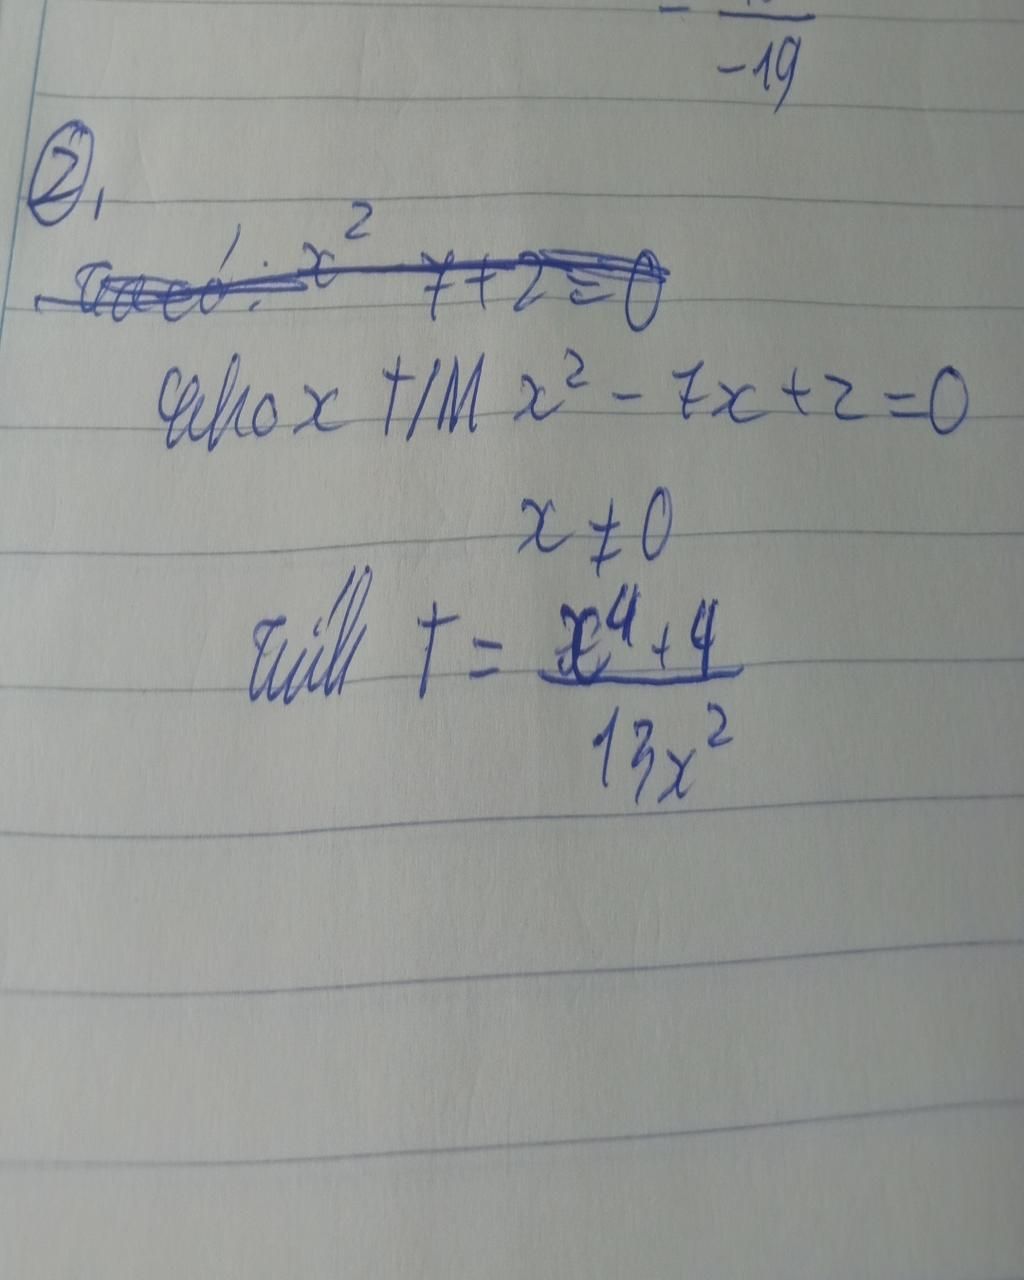 -19
②,
Ta có: x² 7+2=0
cho x t/m x² - 7x + 2 = 0
x ≠ 0
Tính T = x⁴ + 4
13x²